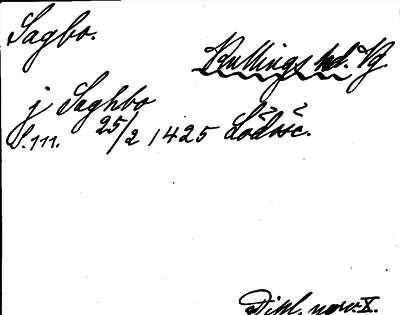 Sagbo.
Kullings hd. Vg.
j Saghbo
S. 111. 25/2 1425 Lödöse.
Dipl. norv. X.